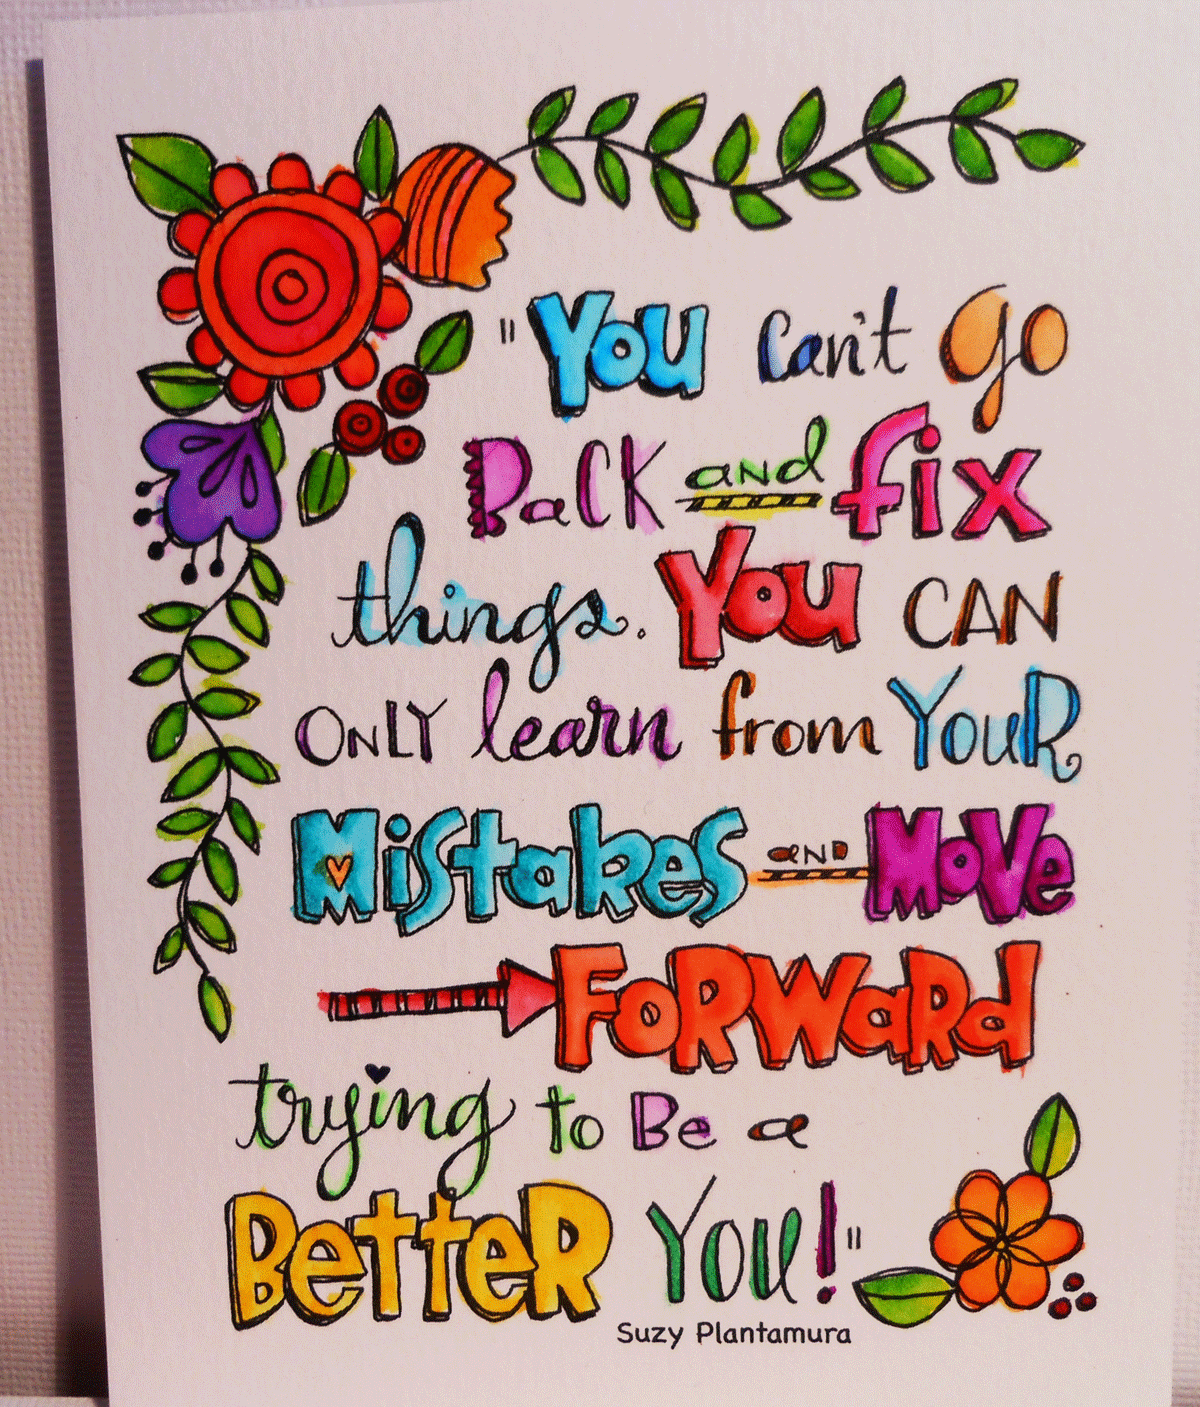 "You can't go
Back and fix
things. You CAN
ONLY learn from YOUR
Mistakes and Move
FORWARd
trying to Be a
BetteR YOU!"
Suzy Plantamura